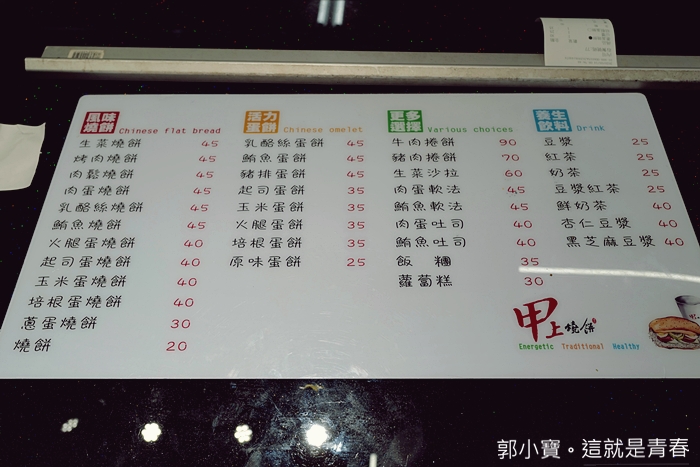 風味
燒餅 Chinese flat bread
生菜燒餅 45
烤肉燒餅 45
肉鬆燒餅 45
肉蛋燒餅 45
乳酪絲燒餅 45
鮪魚燒餅 45
火腿蛋燒餅 40
起司蛋燒餅 40
玉米蛋燒餅 40
培根蛋燒餅 40
蔥蛋燒餅 30
燒餅 20
活力
蛋餅 Chinese omelet
乳酪絲蛋餅 45
鮪魚蛋餅 45
豬排蛋餅 45
起司蛋餅 35
玉米蛋餅 35
火腿蛋餅 35
培根蛋餅 35
原味蛋餅 25
更多
選擇 Various choices
牛肉捲餅 90
豬肉捲餅 70
生菜沙拉 60
肉蛋軟法 45
鮪魚軟法 45
肉蛋吐司 40
鮪魚吐司 40
飯糰 35
蘿蔔糕 30
養生
飲料 Drink
豆漿 25
紅茶 25
奶茶 25
豆漿紅茶 25
鮮奶茶 40
杏仁豆漿 40
黑芝麻豆漿 40
甲上燒餅
Energetic Traditional Healthy
郭小寶。這就是青春